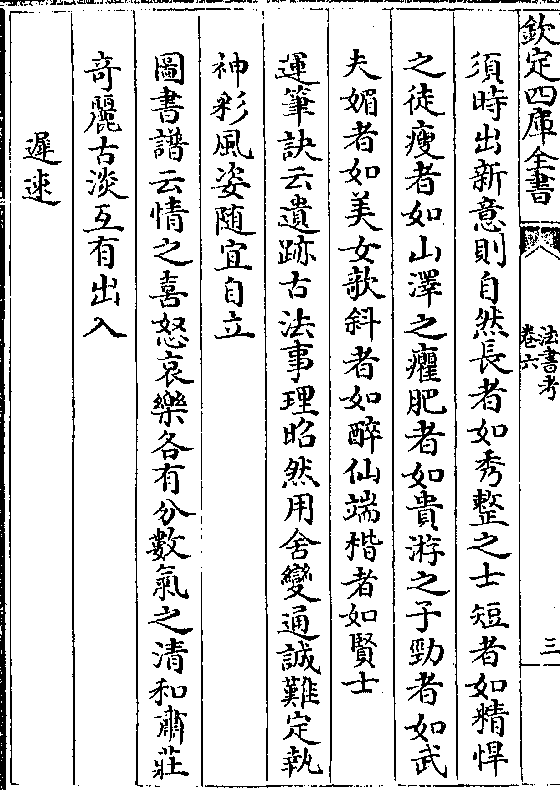 欽定四庫全書
法書考
卷六
三
須時出新意則自然長者如秀整之士短者如精悍
之徒瘦者如山澤之癯肥者如貴游之子勁者如武
夫媚者如美女欹斜者如醉仙端楷者如賢士
運筆訣云遺跡古法事理昭然用舍變通誠難定執
神彩風姿随宜自立
圖書譜云情之喜怒哀樂各有分數氣之清和肅莊
竒麗古淡互有出入
遲速